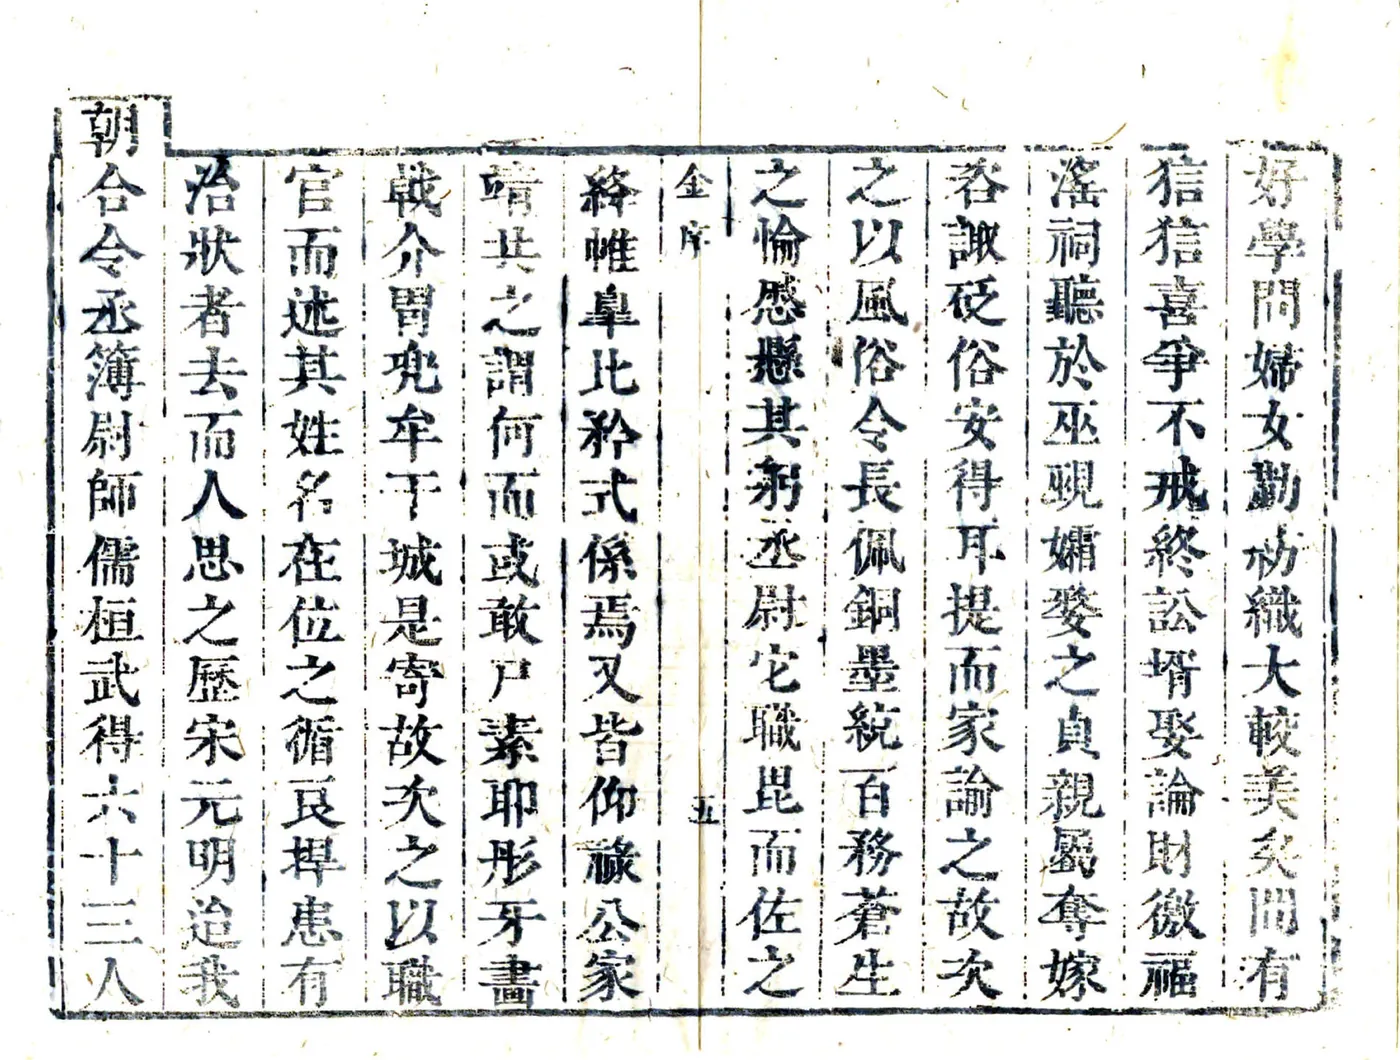 好學問婦女勤紡織大較美矣間有
狺狺喜爭不戒終訟壻娶論財徼福
滛祠聽於巫覡孀婺之貞親屬奪嫁
咨諏砭俗安得耳提而家諭之故次
之以風俗令長佩銅墨統百務蒼生
之愉慼懸其躬丞尉它職毘而佐之
金序 五
絳帷臯比矜式係焉又皆仰祿公家
靖共之謂何而或敢尸素耶彤牙畫
戟介冑兜牟干城是寄故次之以職
官而述其姓名在位之循良捍患有
治狀者去而人思之歷宋元明迨我
朝合令丞簿尉師儒桓武得六十三人